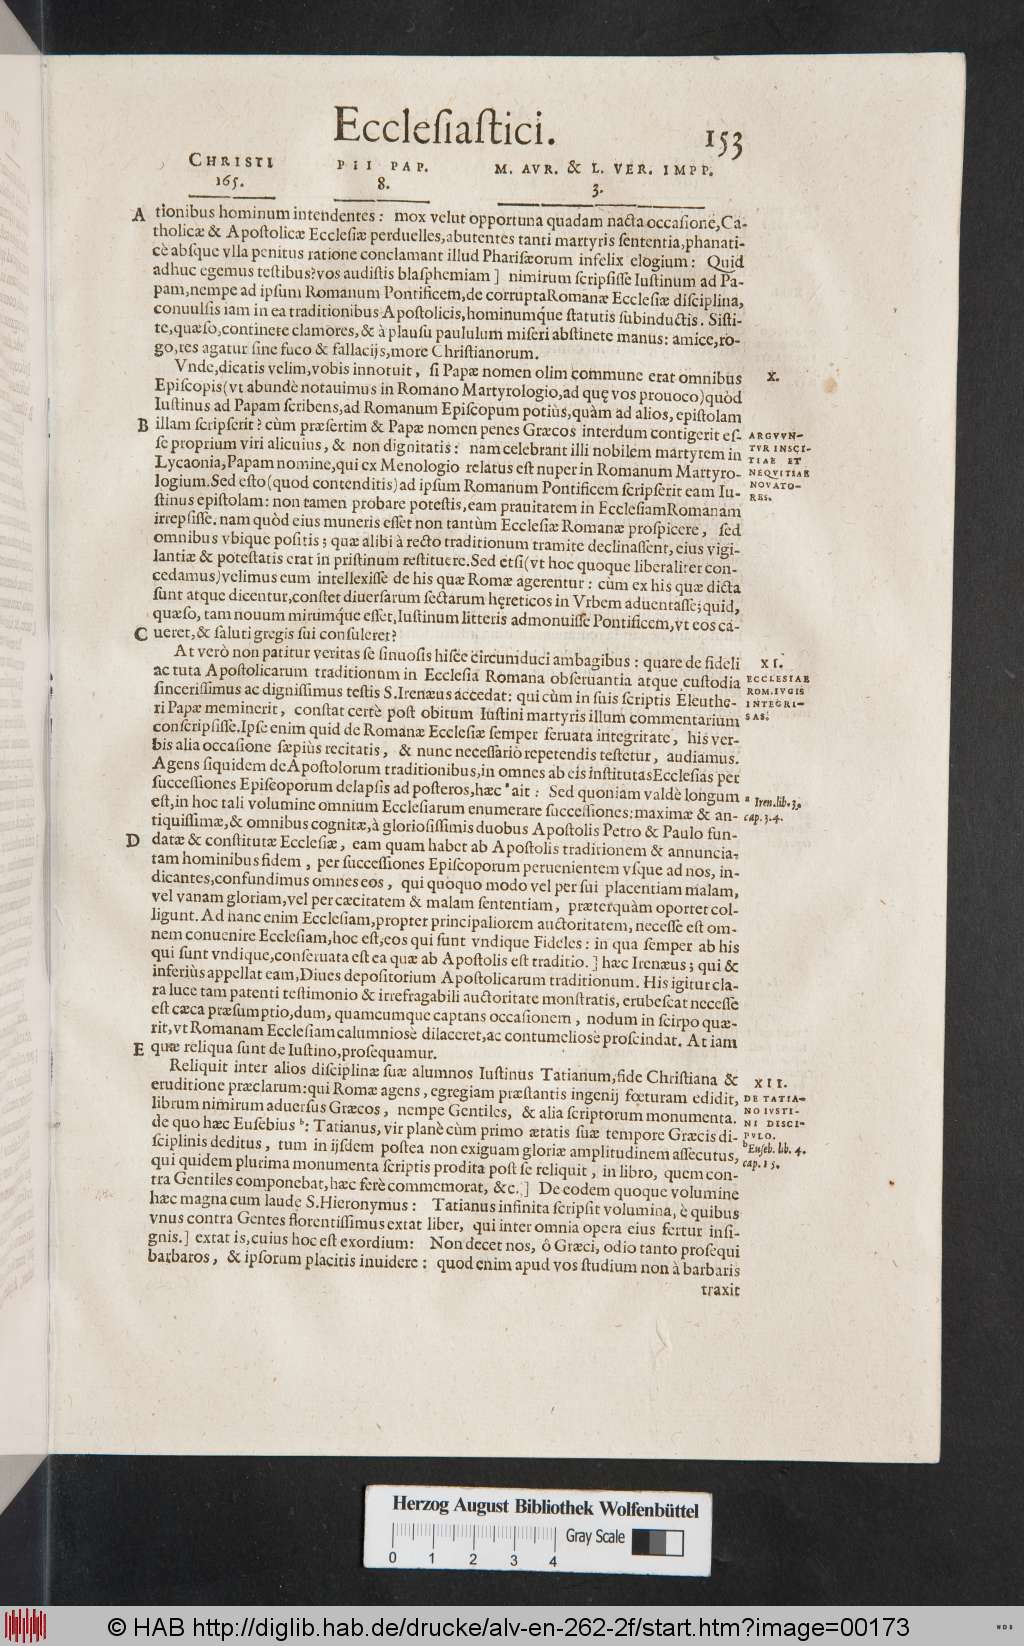 Eccleſiaſtici.
153
CHRISTI PII PAP. M. AVR. & L. VER. IMPP.
165. 8. 3.
A tionibus hominum intendentes: mox velut opportuna quadam nacta occaſione, Ca-
tholicæ & Apoſtolicæ Eccleſiæ perduelles, abutentes tanti martyris ſententia, phanati-
cè abſque vlla penitus ratione conclamant illud Phariſæorum infelix elogium: Quid
adhuc egemus teſtibus? vos audiſtis blaſphemiam] nimirum ſcripſiſſe Iuſtinum ad Pa-
pam, nempe ad ipſum Romanum Pontificem, de corrupta Romanæ Eccleſiæ diſciplina,
conuulſis iam in ea traditionibus Apoſtolicis, hominumq́ue ſtatutis ſubinductis. Siſti-
te, quæſo, continete clamores, & à plauſu paululum miſeri abſtinete manus: amice, ro-
go, res agatur ſine fuco & fallacijs, more Chriſtianorum.
Vnde, dicatis velim, vobis innotuit, ſi Papæ nomen olim commune erat omnibus
X.
Epiſcopis (vt abundè notauimus in Romano Martyrologio, ad quę vos prouoco) quòd
Iuſtinus ad Papam ſcribens, ad Romanum Epiſcopum potiùs, quàm ad alios, epiſtolam
B illam ſcripſerit? cùm præſertim & Papæ nomen penes Græcos interdum contigerit eſ-
ſe proprium viri alicuius, & non dignitatis: nam celebrant illi nobilem martyrem in
Lycaonia, Papam nomine, qui ex Menologio relatus eſt nuper in Romanum Martyro-
logium. Sed eſto (quod contenditis) ad ipſum Romanum Pontificem ſcripſerit eam Iu-
ſtinus epiſtolam: non tamen probare poteſtis, eam prauitatem in Eccleſiam Romanam
ARGVVN-
TVR INSCI-
TIAE ET
NEQVITIAE
NOVATO-
RES.
irrepſiſſe. nam quòd eius muneris eſſet non tantùm Eccleſiæ Romanæ proſpicere, ſed
omnibus vbique poſitis; quæ alibi à recto traditionum tramite declinaſſent, eius vigi-
lantiæ & poteſtatis erat in priſtinum reſtituere. Sed etſi (vt hoc quoque liberaliter con-
cedamus) velimus eum intellexiſſe de his quæ Romæ agerentur: cùm ex his quæ dicta
ſunt atque dicentur, conſtet diuerſarum ſectarum hęreticos in Vrbem aduentaſſe; quid,
quæſo, tam nouum mirumq́ue eſſet, Iuſtinum litteris admonuiſſe Pontificem, vt eos ca-
C ueret, & ſaluti gregis ſui conſuleret?
At verò non patitur veritas ſe ſinuoſis hiſce circumduci ambagibus: quare de fideli
ac tuta Apoſtolicarum traditionum in Eccleſia Romana obſeruantia atque cuſtodia
ſinceriſſimus ac digniſſimus teſtis S. Irenæus accedat: qui cùm in ſuis ſcriptis Eleuthe-
ri Papæ meminerit, conſtat certè poſt obitum Iuſtini martyris illum commentarium
XI.
ECCLESIAE
ROM. IVGIS
INTEGRI-
SAS.
conſcripſiſſe. Ipſe enim quid de Romanæ Eccleſiæ ſemper ſeruata integritate, his ver-
bis alia occaſione ſæpiùs recitatis, & nunc neceſſariò repetendis teſtetur, audiamus.
Agens ſiquidem de Apoſtolorum traditionibus, in omnes ab eis inſtitutas Eccleſias per
ſucceſſiones Epiſcoporum delapſis ad poſteros, hæc ª ait: Sed quoniam valdè longum
eſt, in hoc tali volumine omnium Eccleſiarum enumerare ſucceſſiones: maximæ & an-
ª Iren. lib. 3.
cap. 3. 4.
tiquiſſimæ, & omnibus cognitæ, à glorioſiſſimis duobus Apoſtolis Petro & Paulo fun-
D datæ & conſtitutæ Eccleſiæ, eam quam habet ab Apoſtolis traditionem & annuncia-
tam hominibus fidem, per ſucceſſiones Epiſcoporum peruenientem vſque ad nos, in-
dicantes, confundimus omnes eos, qui quoquo modo vel per ſui placentiam malam,
vel vanam gloriam, vel per cæcitatem & malam ſententiam, præterquàm oportet col-
ligunt. Ad hanc enim Eccleſiam, propter principaliorem auctoritatem, neceſſe eſt om-
nem conuenire Eccleſiam, hoc eſt, eos qui ſunt vndique Fideles: in qua ſemper ab his
qui ſunt vndique, conſeruata eſt ea quæ ab Apoſtolis eſt traditio.] hæc Irenæus; qui &
inferiùs appellat eam, Diues depoſitorium Apoſtolicarum traditionum. His igitur cla-
ra luce tam patenti teſtimonio & irrefragabili auctoritate monſtratis, erubeſcat neceſſe
eſt cæca præſumptio, dum, quamcumque captans occaſionem, nodum in ſcirpo quæ-
rit, vt Romanam Eccleſiam calumniosè dilaceret, ac contumeliosè proſcindat. At iam
E quæ reliqua ſunt de Iuſtino, proſequamur.
Reliquit inter alios diſciplinæ ſuæ alumnos Iuſtinus Tatianum, fide Chriſtiana &
eruditione præclarum: qui Romæ agens, egregiam præſtantis ingenij fœturam edidit,
librum nimirum aduerſus Græcos, nempe Gentiles, & alia ſcriptorum monumenta.
de quo hæc Euſebius ᵇ: Tatianus, vir planè cùm primo ætatis ſuæ tempore Græcis di-
ſciplinis deditus, tum in ijſdem poſtea non exiguam gloriæ amplitudinem aſſecutus,
qui quidem plurima monumenta ſcriptis prodita poſt ſe reliquit, in libro, quem con-
XII.
DE TATIA-
NO IVSTI-
NI DISCI-
PVLO.
ᵇ Euſeb. lib. 4.
cap. 15.
tra Gentiles componebat, hæc ferè commemorat, &c.] De eodem quoque volumine
hæc magna cum laude S. Hieronymus: Tatianus infinita ſcripſit volumina, è quibus
vnus contra Gentes florentiſſimus extat liber, qui inter omnia opera eius fertur inſi-
gnis.] extat is, cuius hoc eſt exordium: Non decet nos, ô Græci, odio tanto proſequi
barbaros, & ipſorum placitis inuidere: quod enim apud vos ſtudium non à barbaris
traxit
Herzog August Bibliothek Wolfenbüttel
Gray Scale
0 1 2 3 4
© HAB http://diglib.hab.de/drucke/alv-en-262-2f/start.htm?image=00173